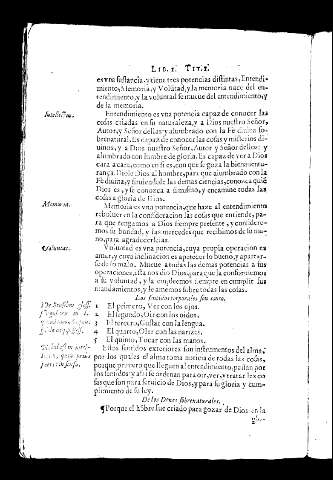 LIB. I. TIT. I.
es vna sustancia, y tiene tres potencias distintas, Entendi-
miento, Memoria, y Volũtad, y la memoria nace del en-
tendimiento, y la voluntad se mueue del entendimiento, y
de la memoria.
Entendimiento es vna potencia capaz de conocer las
cosas criadas en su naturaleza, y a Dios nuestro Señor,
Autor, y Señor dellas y alumbrado con la Fè diuina so-
brenatural. Es capaz de conocer las cosas y misterios di-
uinos, y a Dios nuestro Señor, Autor y Señor dellos: y
alumbrado con lumbre de gloria. Es capaz de ver a Dios
cara a cara, como en si es, con que se goza la bienauentu-
rança. Diole Dios al hombre, para que alumbrado con la
Fè diuina, y siruiendose de las demas ciencias, conozca quiẽ
Dios es, y se conozca a si mismo, y encamine todas las
cosas a gloria de Dios.
Memoria.
Memoria es vna potencia, que haze al entendimiento
reboluer en la consideracion las cosas que entiende, pa-
ra que tengamos a Dios siempre presente, y considere-
mos su bondad, y las mercedes que recibimos de su ma-
no, para agradecerselas.
Voluntas.
Voluntad es vna potencia, cuya propia operacion es
amar, y cuya inclinacion es apetecer lo bueno, y apartar-
se de lo malo. Mueue a todas las demas potencias a sus
operaciones, dionosla Dios, para que la conformemos
a su voluntad, y la empleemos siempre en cumplir sus
mandamientos, y le amemos sobre todas las cosas.
Los sentidos corporales son cinco.
1 El primero, Ver con los ojos.
2 El segundo, Oir con los oidos.
3 El tercero, Gustar con la lengua.
4 El quarto, Oler con las narizes.
5 El quinto, Tocar con las manos.
Estos sentidos exteriores son instrumentos del alma,
por los quales el alma toma noticia de todas las cosas,
porque primero que lleguen al entendimiento, passan por
los sentidos y assi se ordenan para oir, ver, y tratar las co-
sas que son para seruicio de Dios, y para su gloria y cum-
plimiento de su ley.
De los Dones sobrenaturales.
¶ Porque el hõbre fue criado para gozar de Dios en la
glo-